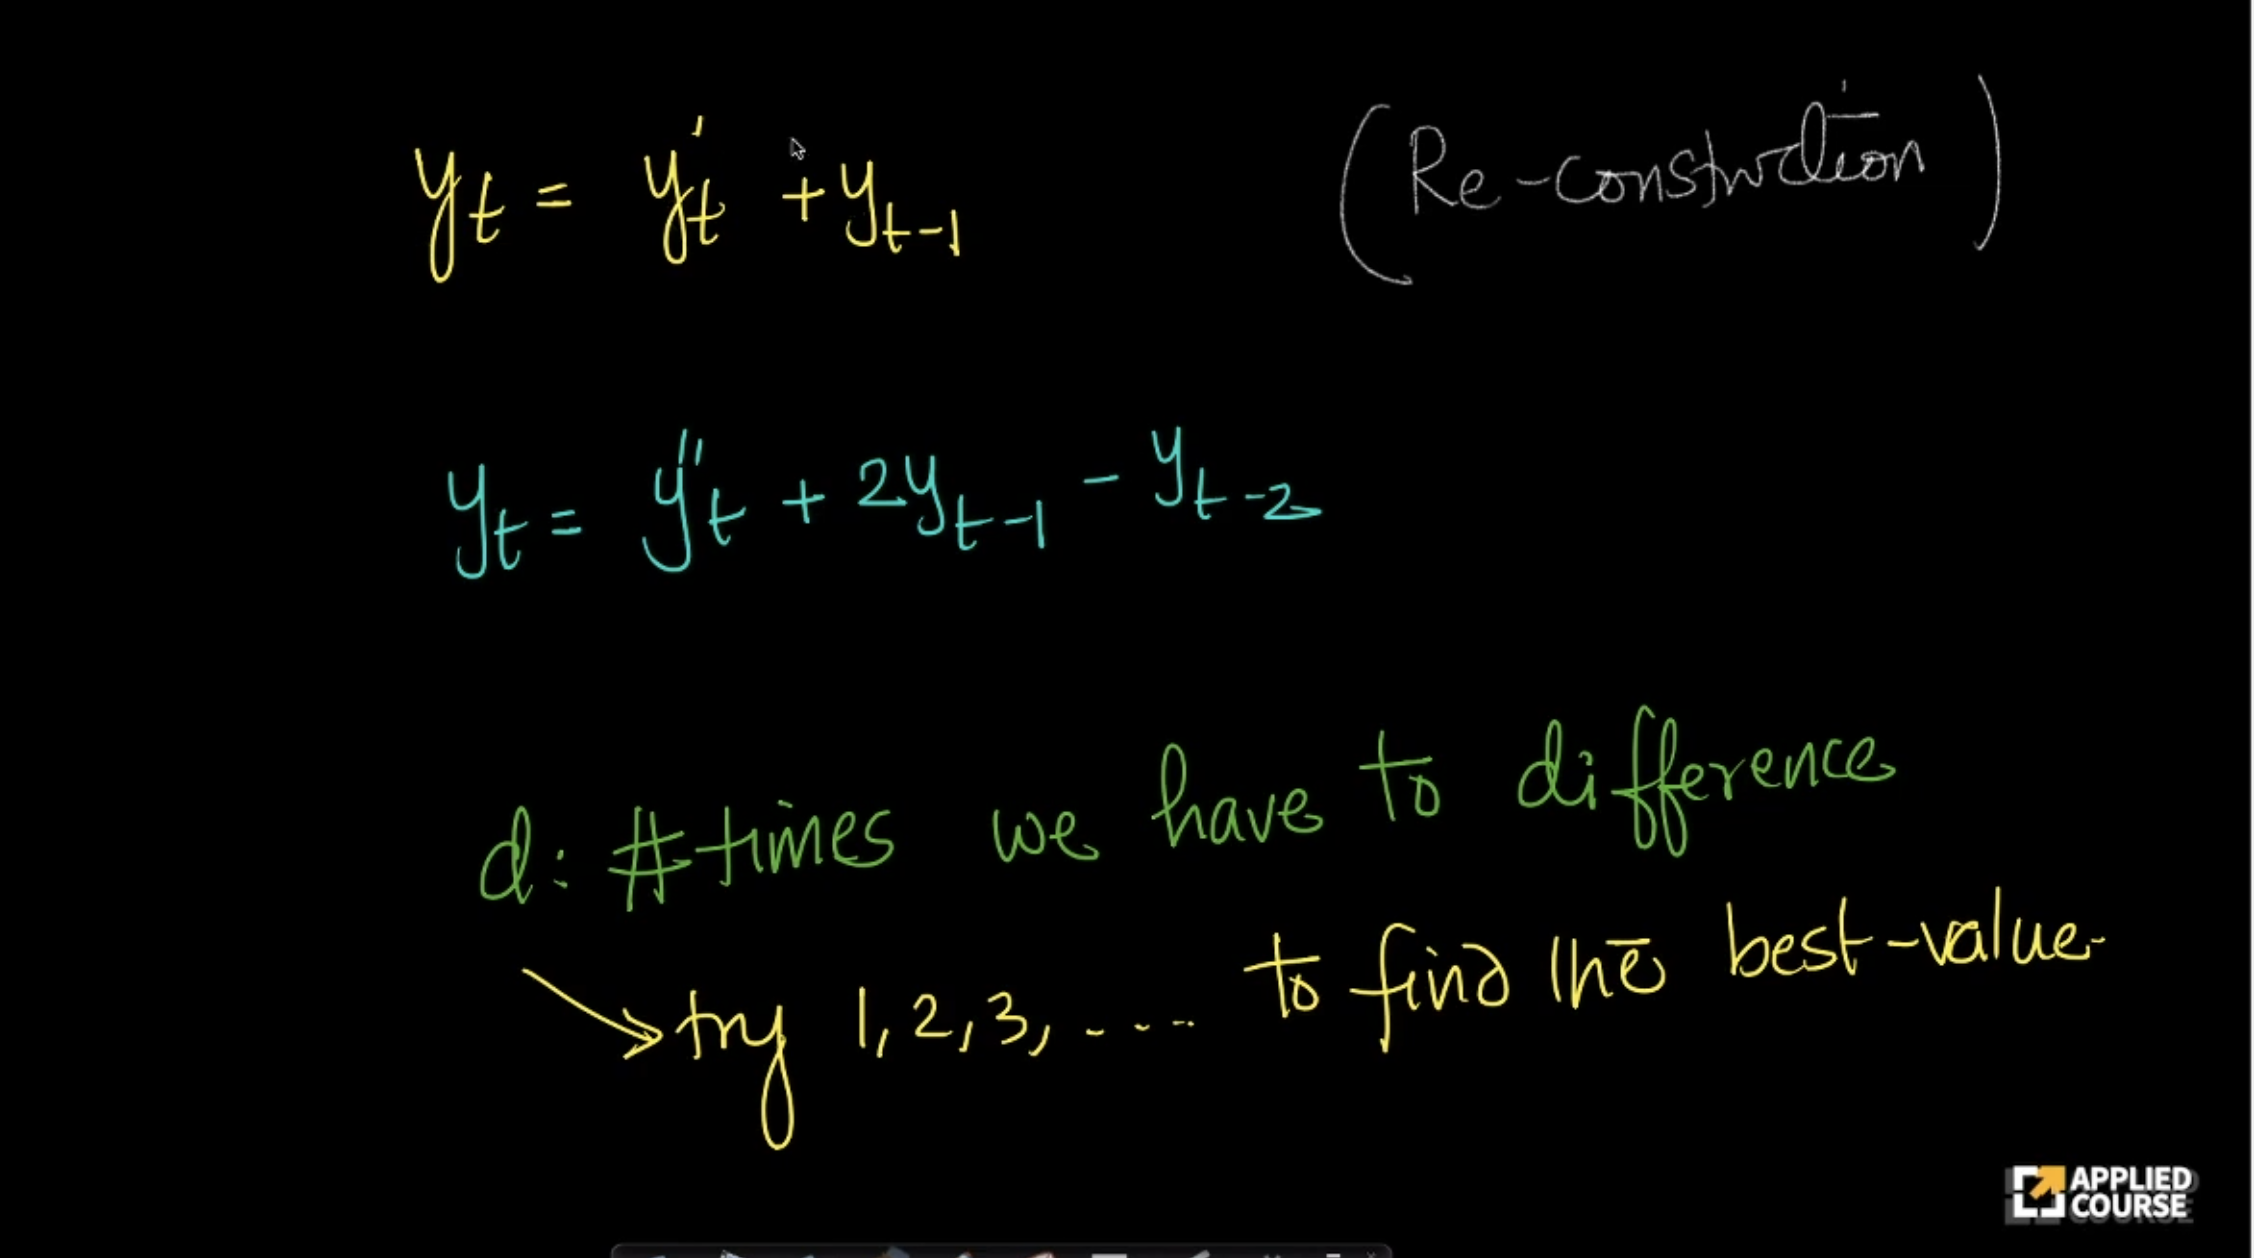 y_t = y'_t + y_{t-1} (Re-construction)
y_t = y''_t + 2y_{t-1} - y_{t-2}
d: #times we have to difference
→ try 1, 2, 3, .... to find the best-value.
APPLIED
COURSE